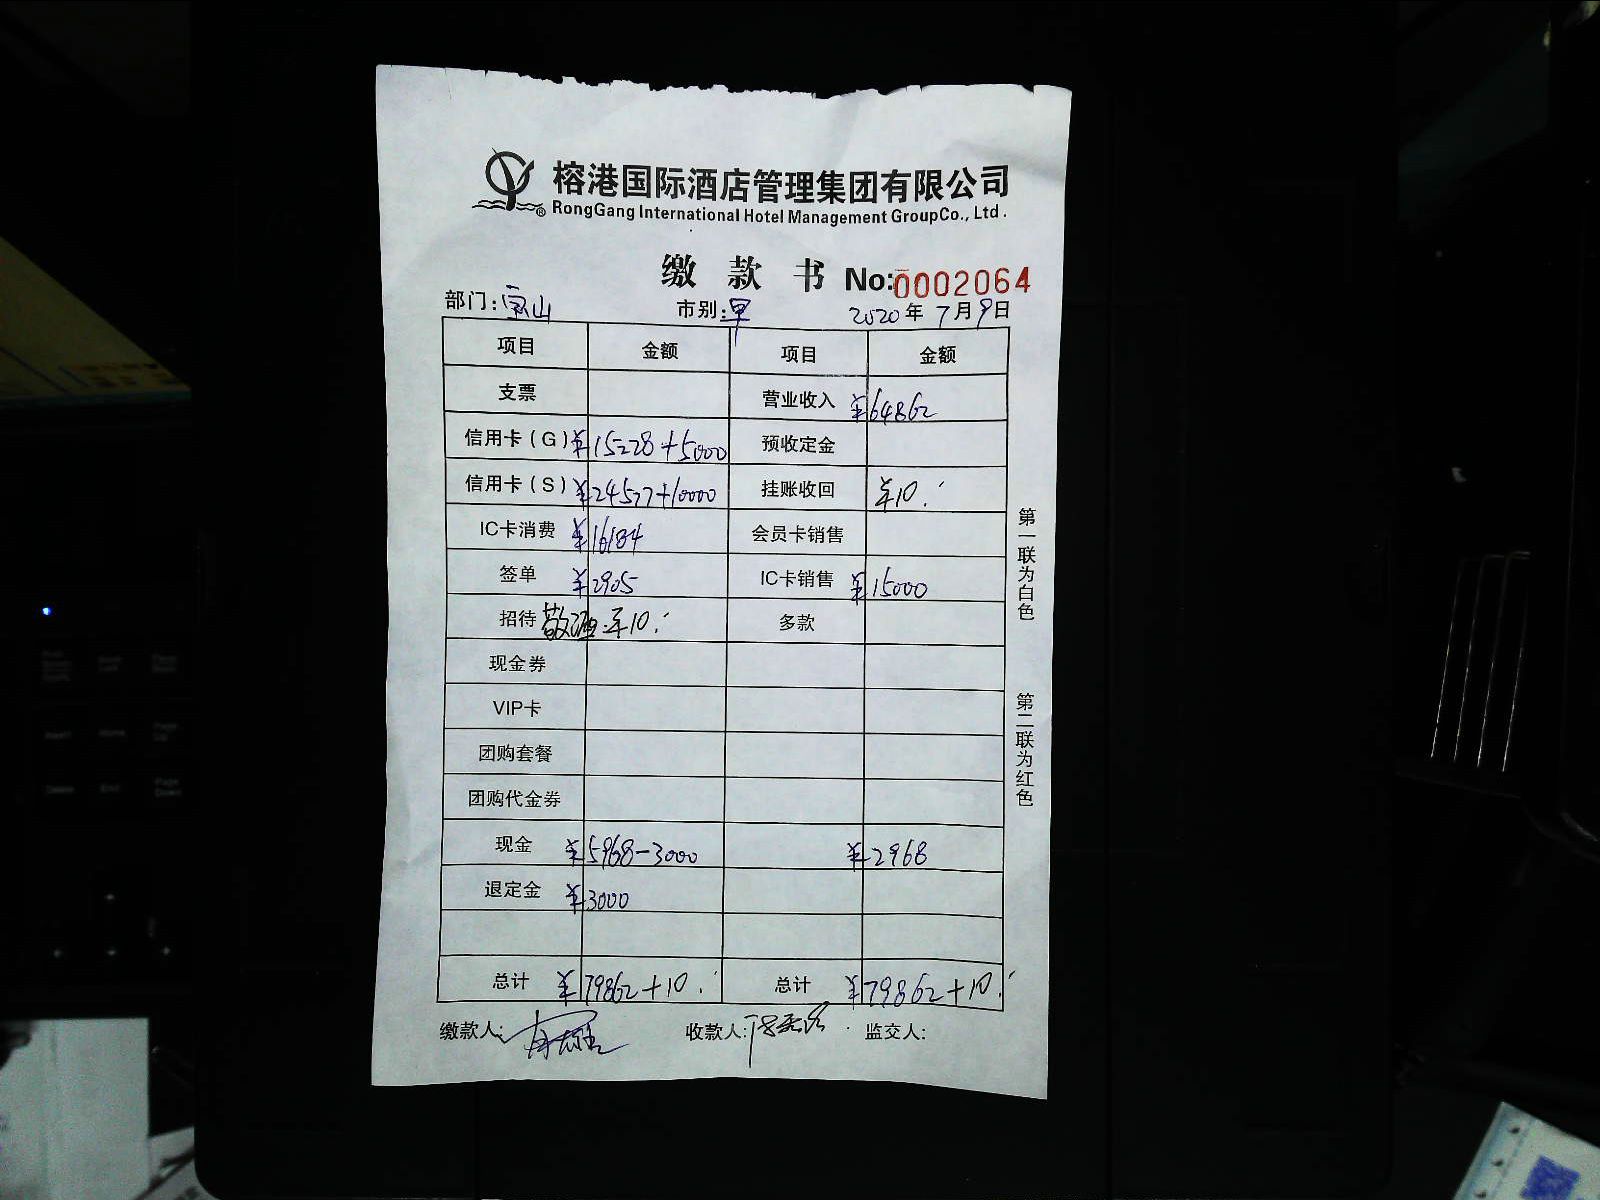 榕港国际酒店管理集团有限公司
RongGang International Hotel Management GroupCo., Ltd.
缴款书 No:0002064
部门:宝山 市别:早 2020年7月9日
项目 金额 项目 金额
支票 营业收入 ¥64862
信用卡(G) ¥15228+5000 预收定金
信用卡(S) ¥24577+10000 挂账收回 ¥10.
IC卡消费 ¥16184 会员卡销售
签单 ¥2905 IC卡销售 ¥15000
招待 敬酒.¥10. 多款
现金券
VIP卡
团购套餐
团购代金券
现金 ¥5968-3000 ¥2968
退定金 ¥3000
总计 ¥79862+10. 总计 ¥79862+10.
缴款人: 收款人: 监交人:
第一联为白色
第二联为红色